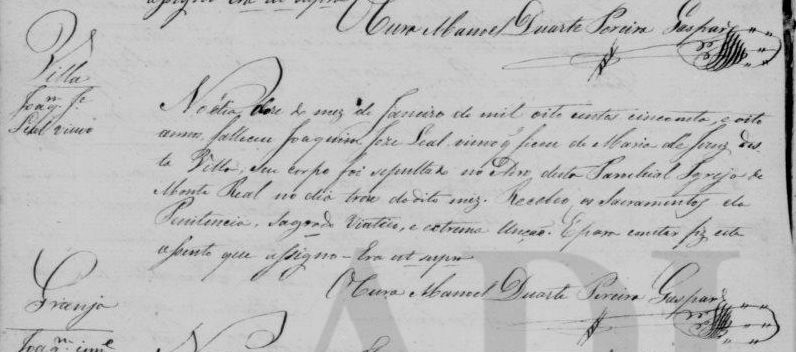 assigno Era ut supra
O Cura Manoel Duarte Pereira Gaspar
Villa
Joaqm Je
Leal viuvo
No dia doze do mez de Janeiro de mil oito centos cincoenta, e oito
annos falleceu Joaquim Joze Leal viuvo q ficou de Maria de Jesus des
ta Villa, seu corpo foi sepultado no Adro desta Parochial Igreja de
Monte Real no dia treze do dito mez. Recebeo os Sacramentos da
Penitencia, Sagrado Viatico, e extrema Unção. E para constar fiz este
assento que assigno - Era ut supra
O Cura Manoel Duarte Pereira Gaspar
Granja
Joaqm
ADL